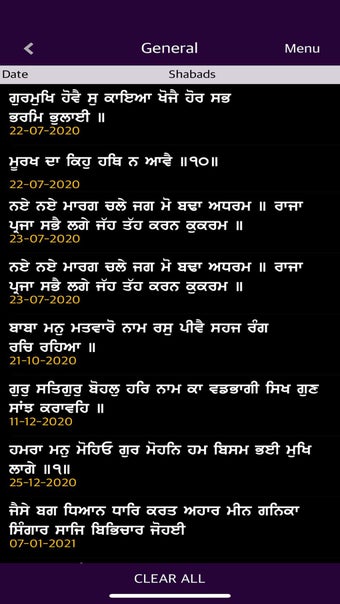 General
Menu
Date
Shabads
ਗੁਰਮੁਖਿ ਹੋਵੈ ਸੁ ਕਾਇਆ ਖੋਜੈ ਹੋਰ ਸਭ
ਭਰਮਿ ਭੁਲਾਈ ॥
22-07-2020
ਮੂਰਖ ਦਾ ਕਿਹੁ ਹਥਿ ਨ ਆਵੈ ॥੧੦॥
22-07-2020
ਨਏ ਨਏ ਮਾਰਗ ਚਲੇ ਜਗ ਮੋ ਬਢਾ ਅਧਰਮ ॥ ਰਾਜਾ
ਪ੍ਰਜਾ ਸਭੈ ਲਗੇ ਜੱਹ ਤੱਹ ਕਰਨ ਕੁਕਰਮ ॥
23-07-2020
ਨਏ ਨਏ ਮਾਰਗ ਚਲੇ ਜਗ ਮੋ ਬਢਾ ਅਧਰਮ ॥ ਰਾਜਾ
ਪ੍ਰਜਾ ਸਭੈ ਲਗੇ ਜੱਹ ਤੱਹ ਕਰਨ ਕੁਕਰਮ ॥
23-07-2020
ਬਾਬਾ ਮਨੁ ਮਤਵਾਰੋ ਨਾਮ ਰਸੁ ਪੀਵੈ ਸਹਜ ਰੰਗ
ਰਚਿ ਰਹਿਆ ॥
21-10-2020
ਗੁਰੁ ਸਤਿਗੁਰੁ ਬੋਹਲੁ ਹਰਿ ਨਾਮ ਕਾ ਵਡਭਾਗੀ ਸਿਖ ਗੁਣ
ਸਾਂਝ ਕਰਾਵਹਿ ॥
11-12-2020
ਹਮਰਾ ਮਨੁ ਮੋਹਿਓ ਗੁਰ ਮੋਹਨਿ ਹਮ ਬਿਸਮ ਭਈ ਮੁਖਿ
ਲਾਗੇ ॥੧॥
25-12-2020
ਜੈਸੇ ਬਗ ਧਿਆਨ ਧਾਰਿ ਕਰਤ ਅਹਾਰ ਮੀਨ ਗਨਿਕਾ
ਸਿੰਗਾਰ ਸਾਜਿ ਬਿਭਿਚਾਰ ਜੋਹਈ
07-01-2021
CLEAR ALL